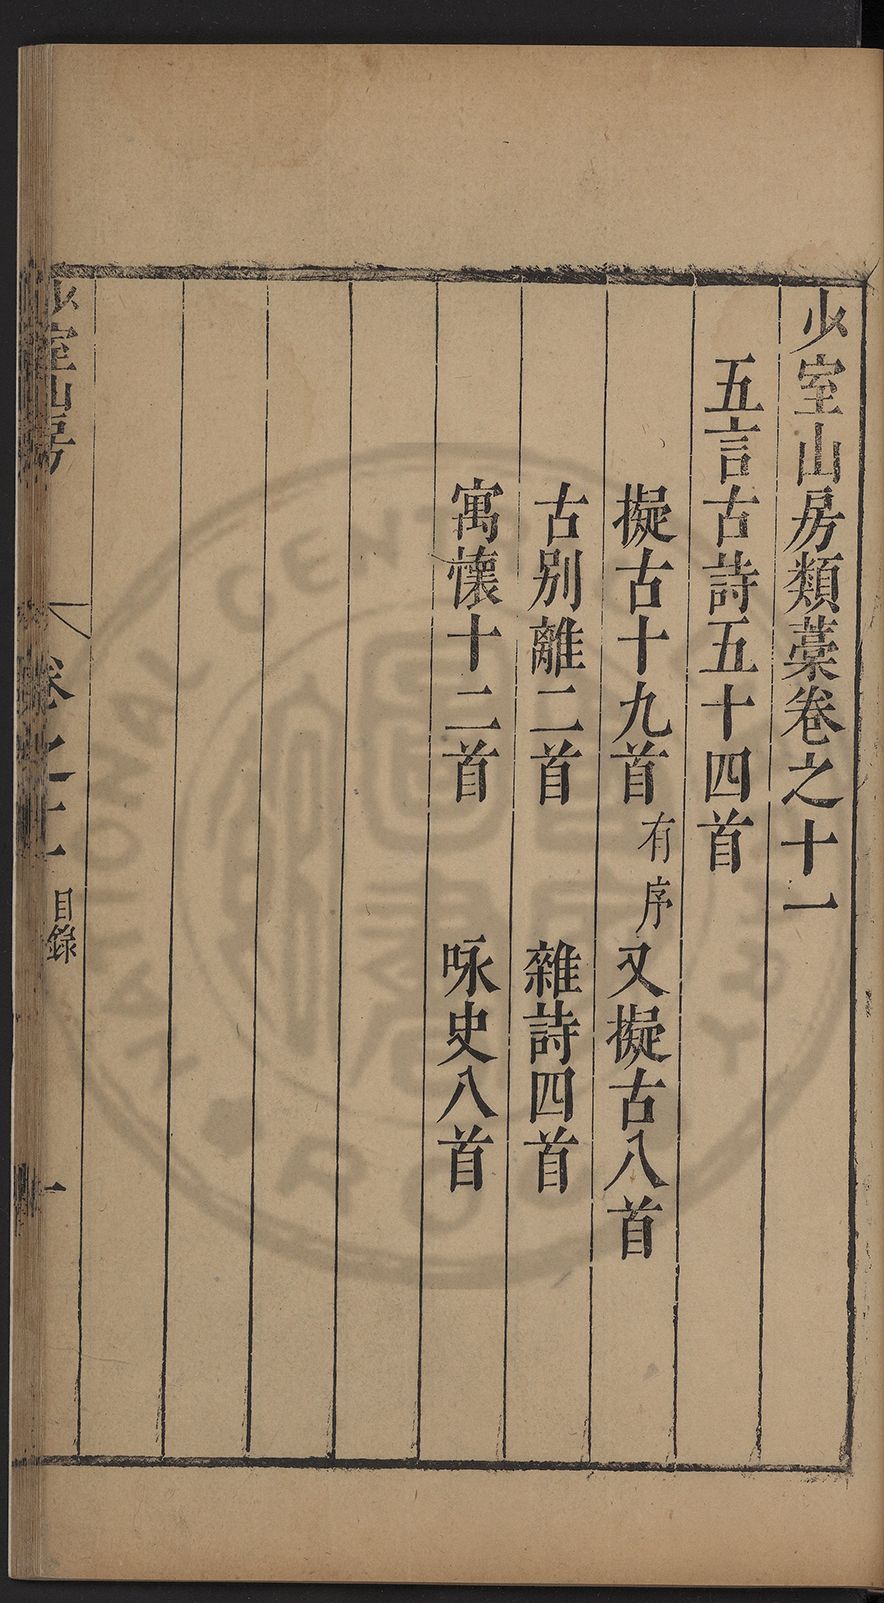 少室山房類藁卷之十一
五言古詩五十四首
擬古十九首有序 又擬古八首
古别離二首 雜詩四首
寓懷十二首 咏史八首
少室山房 卷之十一 目錄 一